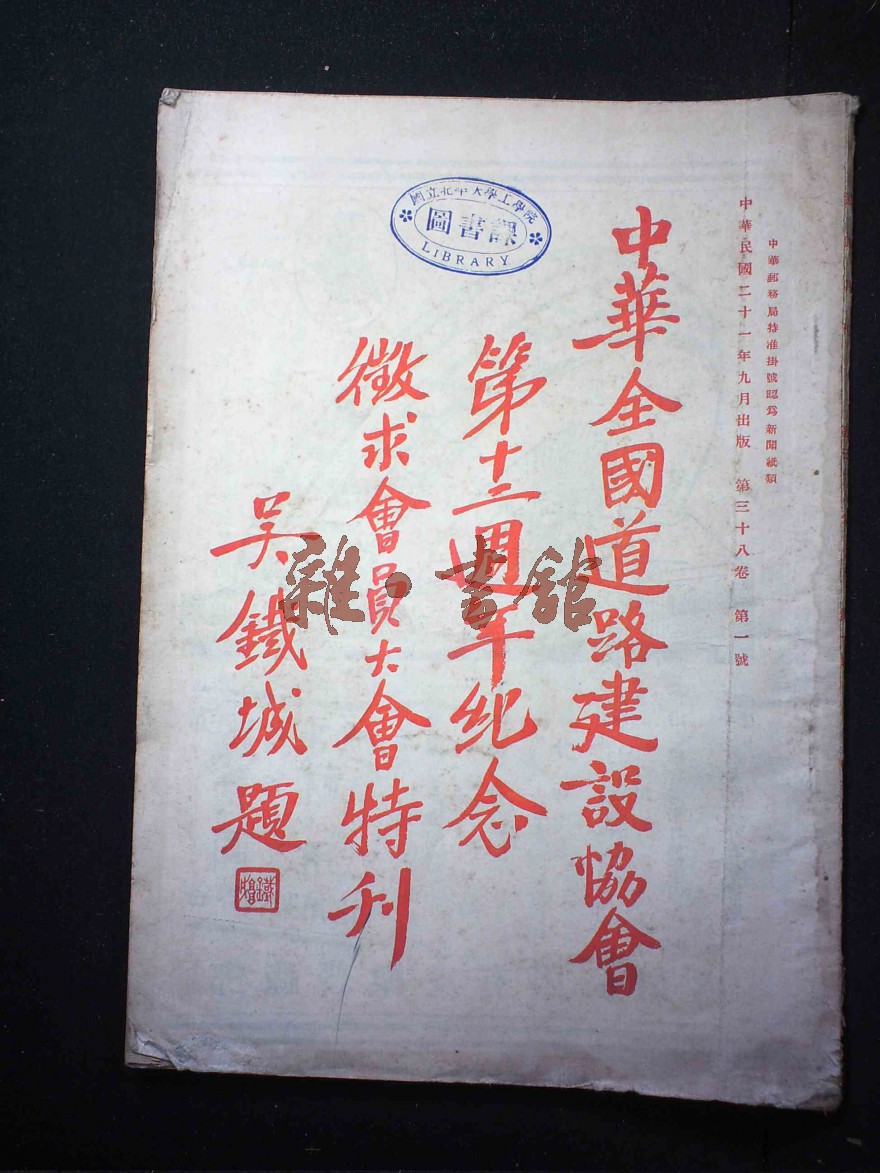 中華郵務局特准掛號認爲新聞紙類
中華民國二十一年九月出版　第三十八卷　第一號
中華全國道路建設協會
第十二週年紀念
徵求會員大會特刊
吴鐵城題
國立北平大學工學院
圖書課
LIBRARY
雜·書館